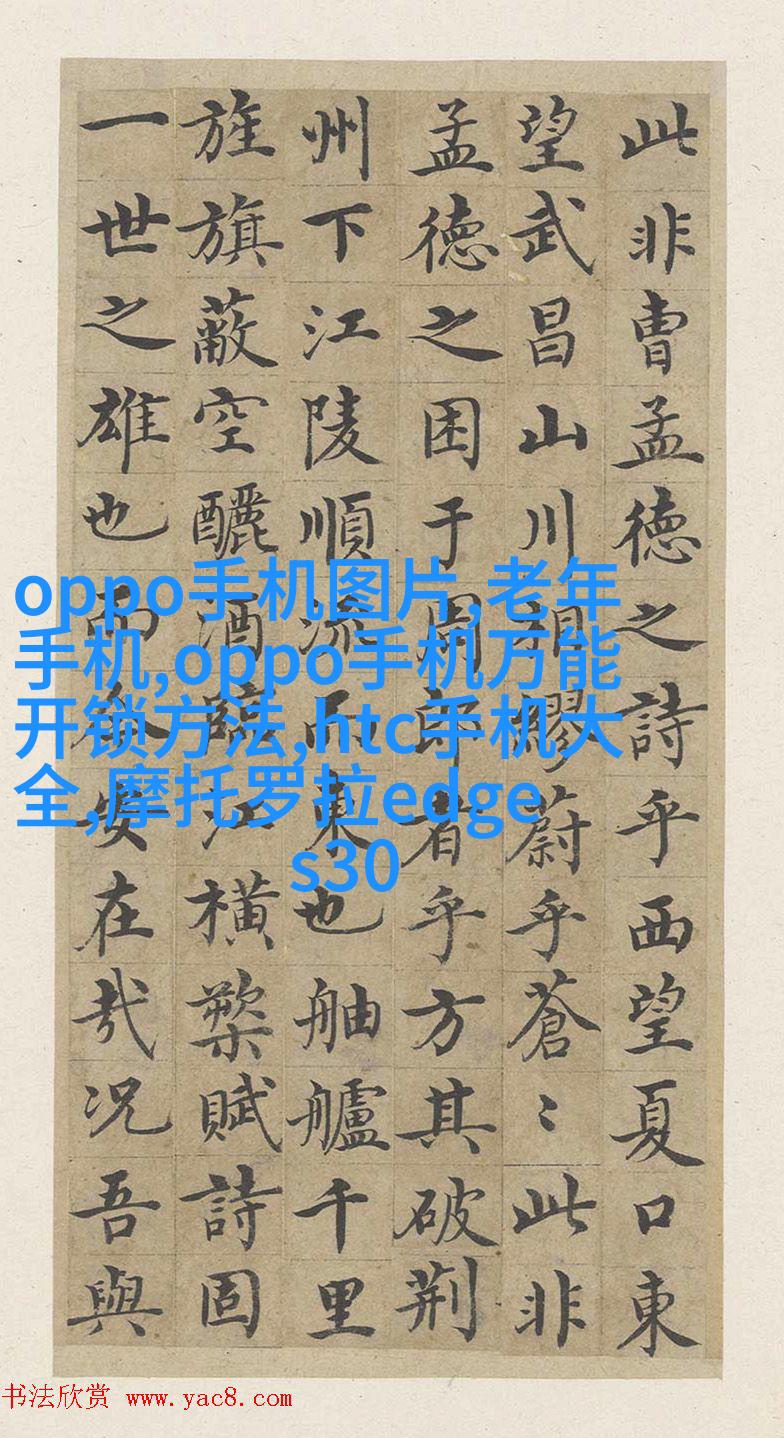 此非曹孟德之詩乎西望夏口東
望武昌山川相繆蔚乎蒼〻此非
孟德之困于周郎者乎方其破荆
州下江陵順流而東也舳艫千里
旌旗蔽空釃酒臨江橫槊賦詩固
一世之雄也而今安在哉况吾與
oppo手机图片,老年
手机,oppo手机万能
开锁方法,htc手机大
全,摩托罗拉edge
s30
书法欣赏 www.yac8.com